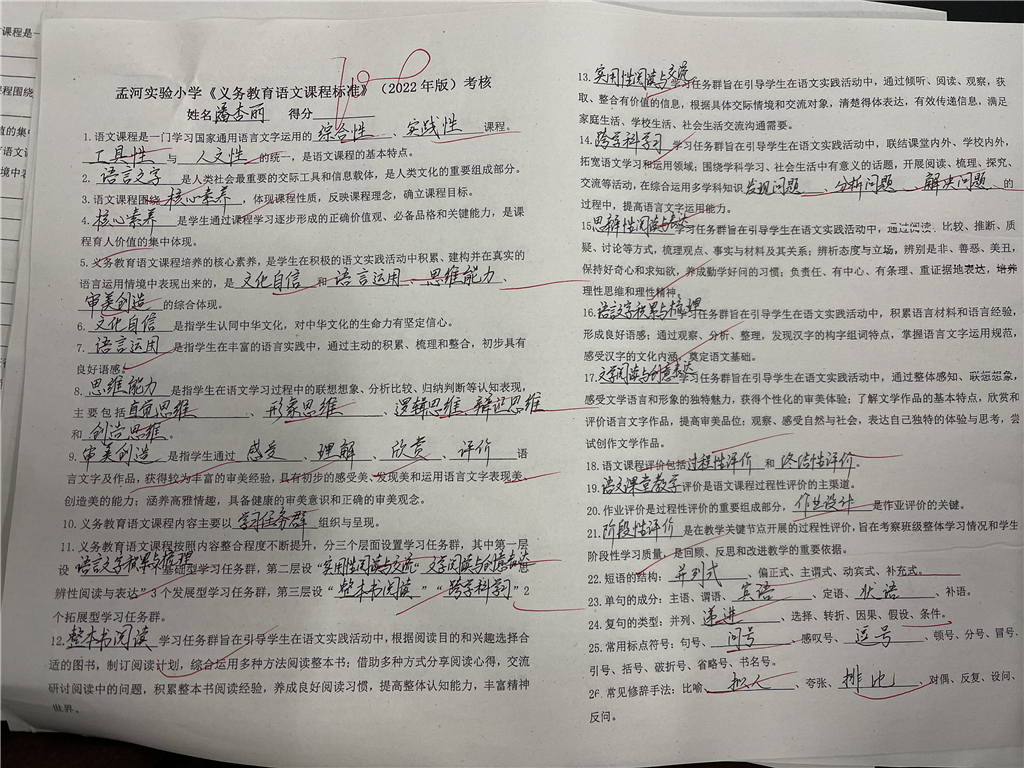 孟河实验小学《义务教育语文课程标准》（2022年版）考核
姓名 潘杏丽 得分
1.语文课程是一门学习国家通用语言文字运用的 综合性 、 实践性 课程。
工具性 与 人文性 的统一，是语文课程的基本特点。
2. 语言文字 是人类社会最重要的交际工具和信息载体，是人类文化的重要组成部分。
3.语文课程围绕 核心素养 ，体现课程性质，反映课程理念，确立课程目标。
4. 核心素养 是学生通过课程学习逐步形成的正确价值观、必备品格和关键能力，是课
程育人价值的集中体现。
5.义务教育语文课程培养的核心素养，是学生在积极的语文实践活动中积累、建构并在真实的
语言运用情境中表现出来的，是 文化自信 和 语言运用 、 思维能力 、
审美创造 的综合体现。
6. 文化自信 是指学生认同中华文化，对中华文化的生命力有坚定信心。
7. 语言运用 是指学生在丰富的语言实践中，通过主动的积累、梳理和整合，初步具有
良好语感；
8. 思维能力 是指学生在语文学习过程中的联想想象、分析比较、归纳判断等认知表现，
主要包括 直觉思维 、 形象思维 、 逻辑思维 、 辩证思维
和 创造思维 。
9. 审美创造 是指学生通过 感受 、 理解 、 欣赏 、 评价 语
言文字及作品，获得较为丰富的审美经验，具有初步的感受美、发现美和运用语言文字表现美、
创造美的能力；涵养高雅情趣，具备健康的审美意识和正确的审美观念。
10. 义务教育语文课程内容主要以 学习任务群 组织与呈现。
11. 义务教育语文课程按照内容整合程度不断提升，分三个层面设置学习任务群，其中第一层
设“ 语言文字积累与梳理 ”基础型学习任务群，第二层设“ 实用性阅读与交流 ”“ 文学阅读与创意表达 ”“思
辨性阅读与表达”3个发展型学习任务群，第三层设“ 整本书阅读 ”“ 跨学科学习 ”2
个拓展型学习任务群。
12. 整本书阅读 学习任务群旨在引导学生在语文实践活动中，根据阅读目的和兴趣选择合
适的图书，制订阅读计划，综合运用多种方法阅读整本书；借助多种方式分享阅读心得，交流
研讨阅读中的问题，积累整本书阅读经验，养成良好阅读习惯，提高整体认知能力，丰富精神
世界。
13. 实用性阅读与交流 学习任务群旨在引导学生在语文实践活动中，通过倾听、阅读、观察，获
取、整合有价值的信息，根据具体交际情境和交流对象，清楚得体表达，有效传递信息，满足
家庭生活、学校生活、社会生活交流沟通需要。
14. 跨学科学习 学习任务群旨在引导学生在语文实践活动中，联结课堂内外、学校内外，
拓宽语文学习和运用领域；围绕学科学习、社会生活中有意义的话题，开展阅读、梳理、探究、
交流等活动，在综合运用多学科知识 发现问题 、 分析问题 、 解决问题 的
过程中，提高语言文字运用能力。
15. 思辨性阅读与表达 学习任务群旨在引导学生在语文实践活动中，通过阅读、比较、推断、质
疑、讨论等方式，梳理观点、事实与材料及其关系；辨析态度与立场，辨别是非、善恶、美丑，
保持好奇心和求知欲，养成勤学好问的习惯；负责任、有中心、有条理、重证据地表达，培养
理性思维和理性精神。
16. 语言文字积累与梳理 学习任务群旨在引导学生在语文实践活动中，积累语言材料和语言经验，
形成良好语感；通过观察、分析、整理，发现汉字的构字组词特点，掌握语言文字运用规范，
感受汉字的文化内涵，奠定语文基础。
17. 文学阅读与创意表达 学习任务群旨在引导学生在语文实践活动中，通过整体感知、联想想象，
感受文学语言和形象的独特魅力，获得个性化的审美体验；了解文学作品的基本特点，欣赏和
评价语言文字作品，提高审美品位；观察、感受自然与社会，表达自己独特的体验与思考，尝
试创作文学作品。
18. 语文课程评价包括 过程性评价 和 终结性评价 。
19. 语文课堂教学 评价是语文课程过程性评价的主渠道。
20. 作业评价是过程性评价的重要组成部分， 作业设计 是作业评价的关键。
21. 阶段性评价 是在教学关键节点开展的过程性评价，旨在考察班级整体学习情况和学生
阶段性学习质量，是回顾、反思和改进教学的重要依据。
22. 短语的结构： 并列式 、偏正式、主谓式、动宾式、补充式。
23. 单句的成分：主语、谓语、 宾语 、定语、 状语 、补语。
24. 复句的类型：并列、 递进 、选择、转折、因果、假设、条件。
25. 常用标点符号：句号、 问号 、感叹号、 逗号 、顿号、分号、冒号、
引号、括号、破折号、省略号、书名号。
26. 常见修辞手法：比喻、 拟人 、夸张、 排比 、对偶、反复、设问、
反问。